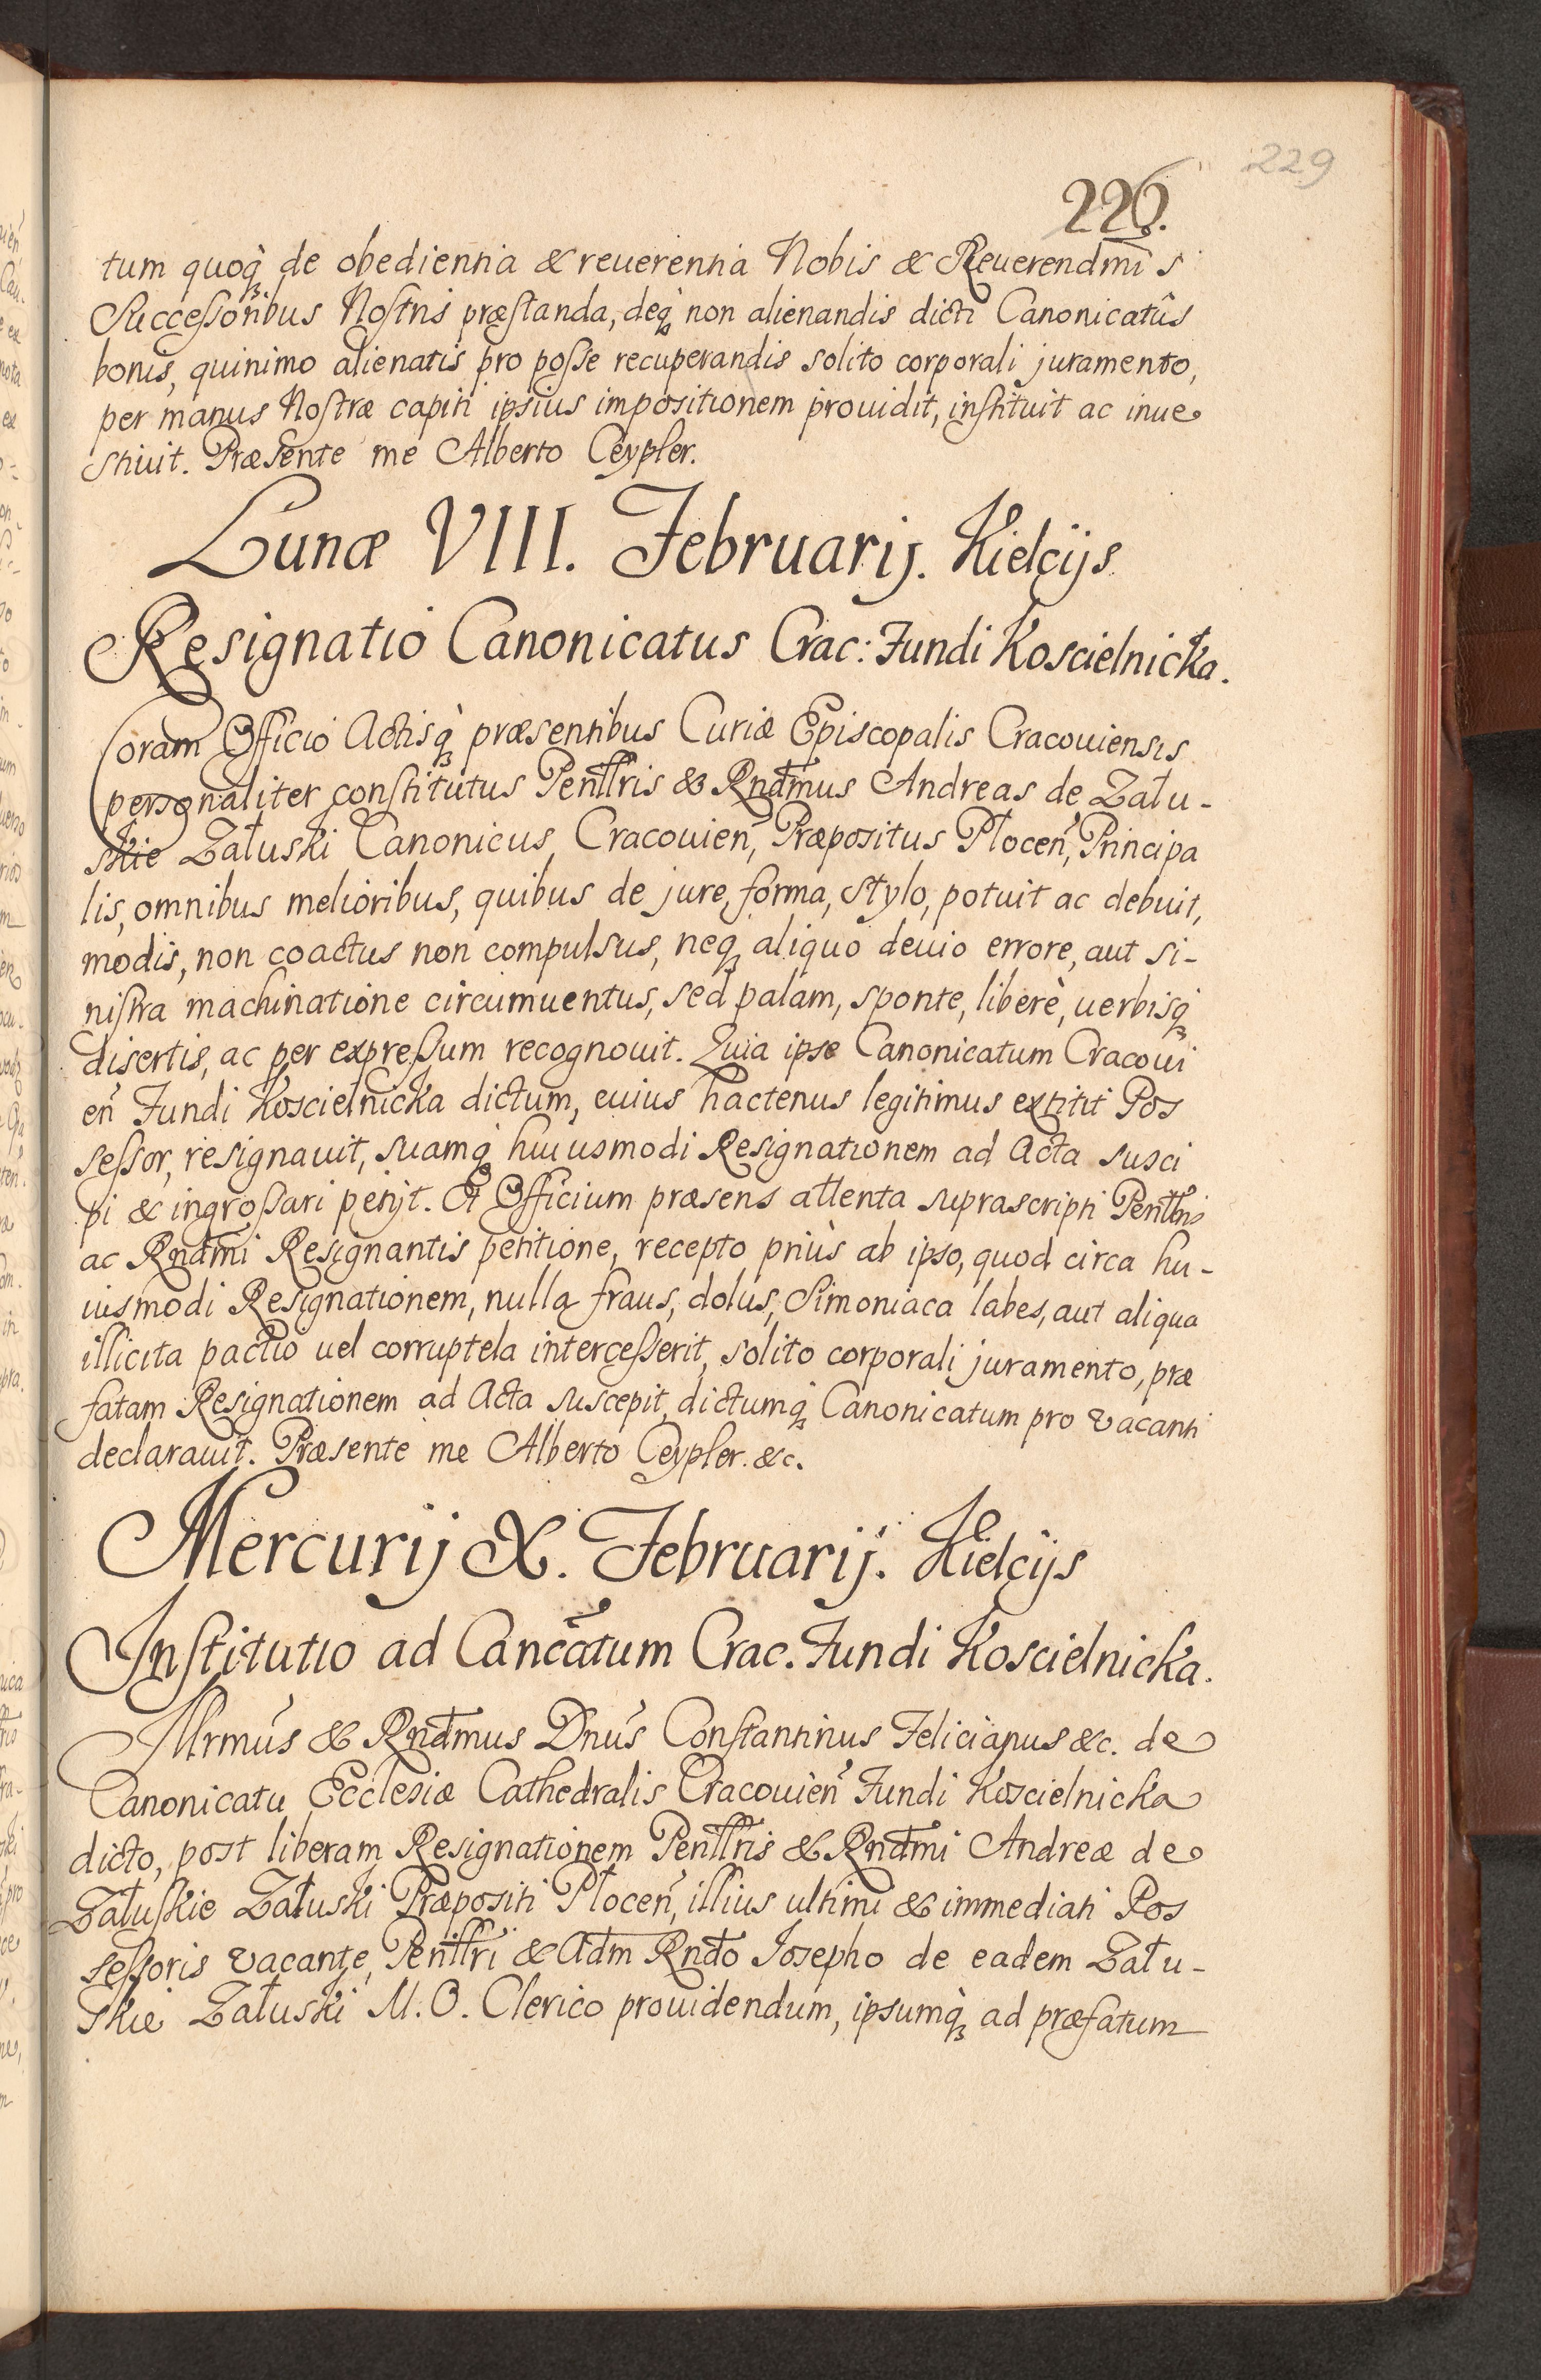 229
226.
tum quoq̀ꝫ de obedientia & reuerentia Nobis & Reuerendm̄i s
Successoribus Nostris præstanda, deq̀ꝫ non alienandis dicti Canonicatûs
bonis, quinimo alienatis pro posse recuperandis solito corporali juramento,
per manus Nostræ capiti ipsius impositionem prouidit, instituit ac inue
stiuit. Præsente me Alberto Ceypler.
Lunæ VIII. Februarij. Kielcijs
Resignatio Canonicatus Crac: Fundi Koscielnicka.
Coram Officio Actisq̀ꝫ præsentibus Curiæ Episcopalis Cracouiensis
personaliter constitutus Perillris & Rndmus Andreas de Zału-
skie Załuski Canonicus, Cracouien̄, Præpositus Płocen̄, Principa
lis, omnibus melioribus, quibus de jure, forma, stylo, potuit ac debuit,
modis, non coactus non compulsus, neqꝫ aliquo deuio errore, aut si-
nistra machinatione circumuentus, sed palam, sponte, liberè, uerbisq̀ꝫ
disertis, ac per expressum recognouit. Quia ipse Canonicatum Cracoui
en̄ Fundi Koscielnicka dictum, cuius hactenus legitimus extitit Pos
sessor, resignauit, suamq̀ꝫ huiusmodi Resignationem ad Acta susci
pi & ingrossari petijt. Et Officium præsens attenta suprascripti Perillris
ac Rndmi Resignantis petitione, recepto priùs ab ipso, quod circa hu-
iusmodi Resignationem, nulla fraus, dolus, Simoniaca labes, aut aliqua
illicita pactio uel corruptela intercesserit, solito corporali juramento, præ
fatam Resignationem ad Acta suscepit, dictumq̀ꝫ Canonicatum pro vacanti
declarauit. Præsente me Alberto Ceypler. &c.
Mercurij X. Februarij. Kielcijs
Institutio ad Cancātum Crac. Fundi Koscielnicka.
Illrmus & Rndmus Dnus Constantinus Felicianus &c. de
Canonicatu Ecclesiæ Cathedralis Cracouien̄ Fundi Koscielnicka
dicto, post liberam Resignationem Perillris & Rndmi Andreæ de
Załuskie Załuski Præpositi Płocen̄, illius ultimi & immediati Pos
sessoris vacante, Perillri & Adm Rndo Josepho de eadem Zału-
skie Załuski M. O. Clerico prouidendum, ipsumq̀ꝫ ad præfatum